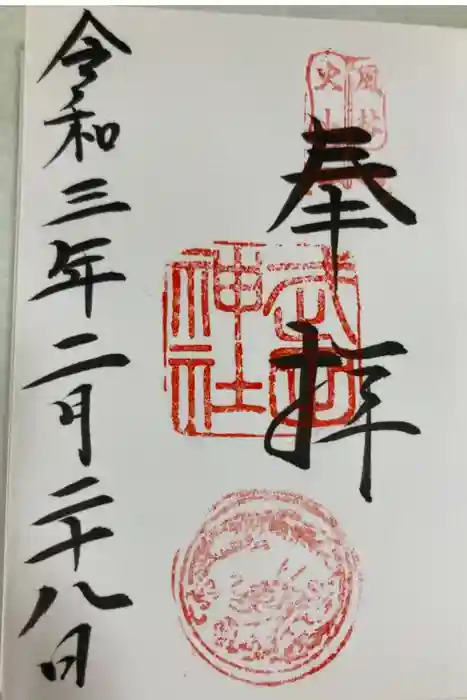 風林
火山
奉拝
武田
神社
令和三年二月二十八日